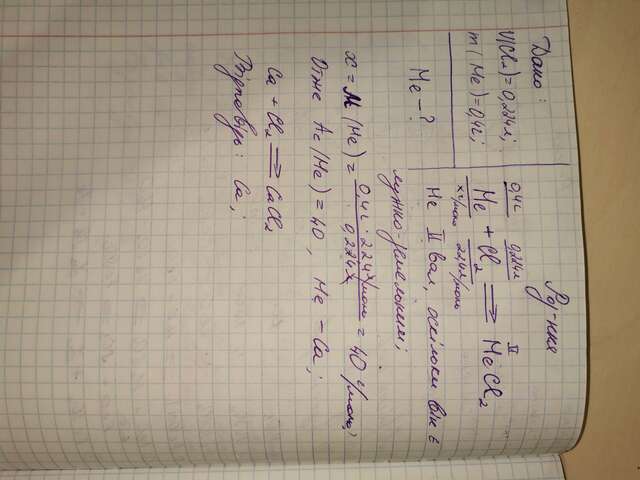 Дано:
V(Cl₂)=0,224л;
m(Me)=0,4г;
Me-?
Розв-ння
0,4г 0,224л II
Me + Cl₂ ⟹ MeCl₂
xг/моль 22,4л/моль
Me II вал, оскільки він є
лужно-земельним;
x = M(Me) = 0,4г · 22,4л/моль / 0,224л = 40 г/моль;
Отже Ar(Me) = 40, Me - Ca;
Ca + Cl₂ ⟹ CaCl₂
Відповідь: Ca;